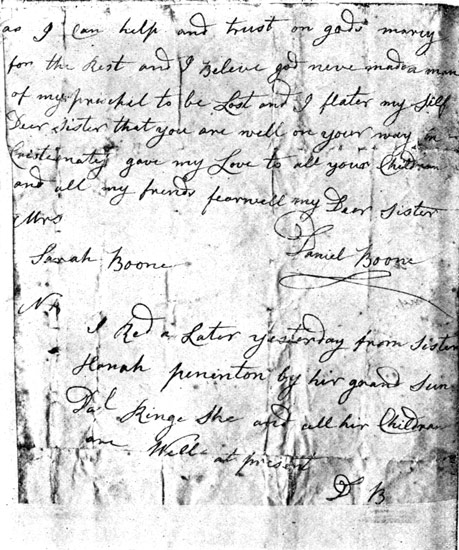 as I can help and trust on gods marcy
for the Rest and I Beleve god neve made a man
of my prisepel to be Lost and I flater my Self
Dear Sister that you are well on your way in
Cristeanaty gave my Love to all your Childran
and all my frends fearwell my Dear Sister
Mrs
Sarah Boone
Daniel Boone
I Red a Later yesterday from Sister
Hanah peninton by hir grand Sun
Dal Ringe She and all hir Childran
are Well at present
D B